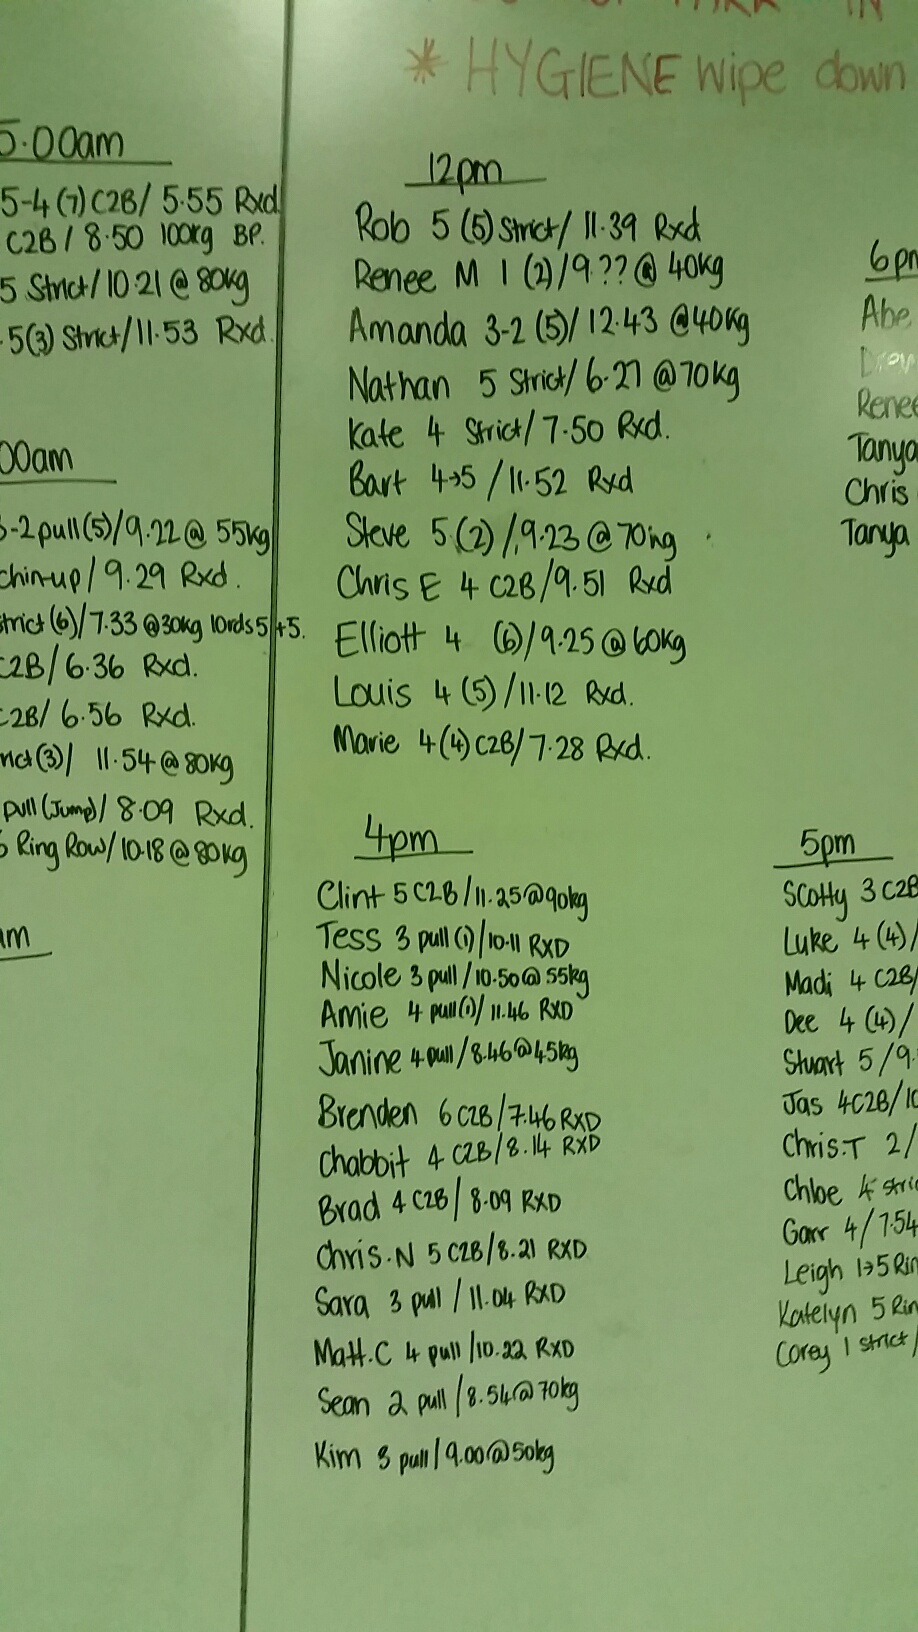 IN
* HYGIENE wipe down
5.00am
5-4 (7) C2B/ 5.55 Rxd
C2B / 8.50 100kg BP.
5 Strict/10.21 @ 80kg
5(3) Strict/11.53 Rxd.
00am
-2 pull(5)/9.22 @ 55kg
chin-up / 9.29 Rxd.
trict (6)/7.33 @30kg 10rds 5+5.
C2B/6.36 Rxd.
C2B/ 6.56 Rxd.
rict(3)/ 11.54 @ 80kg
pull (Jump)/ 8.09 Rxd.
Ring Row/10.18 @ 80kg
am
12pm
Rob 5 (5) Strict/ 11.39 Rxd
Renee M 1 (2)/9.?? @ 40kg
Amanda 3-2 (5)/12.43 @40kg
Nathan 5 Strict/6.27 @70kg
Kate 4 Strict/7.50 Rxd.
Bart 4→5 /11.52 Rxd
Steve 5 (2) /9.23 @ 70kg
Chris E 4 C2B/9.51 Rxd
Elliott 4 (6)/9.25 @ 60kg
Louis 4 (5) /11.12 Rxd.
Marie 4(4) C2B/7.28 Rxd.
4pm
Clint 5 C2B/11.25@90kg
Tess 3 pull (1)/10.11 RXD
Nicole 3 pull/10.50@ 55kg
Amie 4 pull(1)/ 11.46 RXD
Janine 4 pull/8.46@45kg
Brenden 6 C2B/7.46 RXD
Chabbit 4 C2B/8.14 RXD
Brad 4 C2B/ 8.09 RXD
Chris.N 5 C2B/8.21 RXD
Sara 3 pull /11.04 RXD
Matt.C 4 pull /10.22 RXD
Sean 2 pull /8.54@70kg
Kim 3 pull/9.00@50kg
6pm
Abe
Drew
Renee
Tanya
Chris
Tanya
5pm
Scotty 3 C2B
Luke 4 (4)/
Madi 4 C2B/
Dee 4 (4) /
Stuart 5 /9.
Jas 4C2B/10
Chris.T 2/
Chloe 4 stric
Garr 4/7.54
Leigh 1→5 Rin
Katelyn 5 Rin
Corey 1 strict/